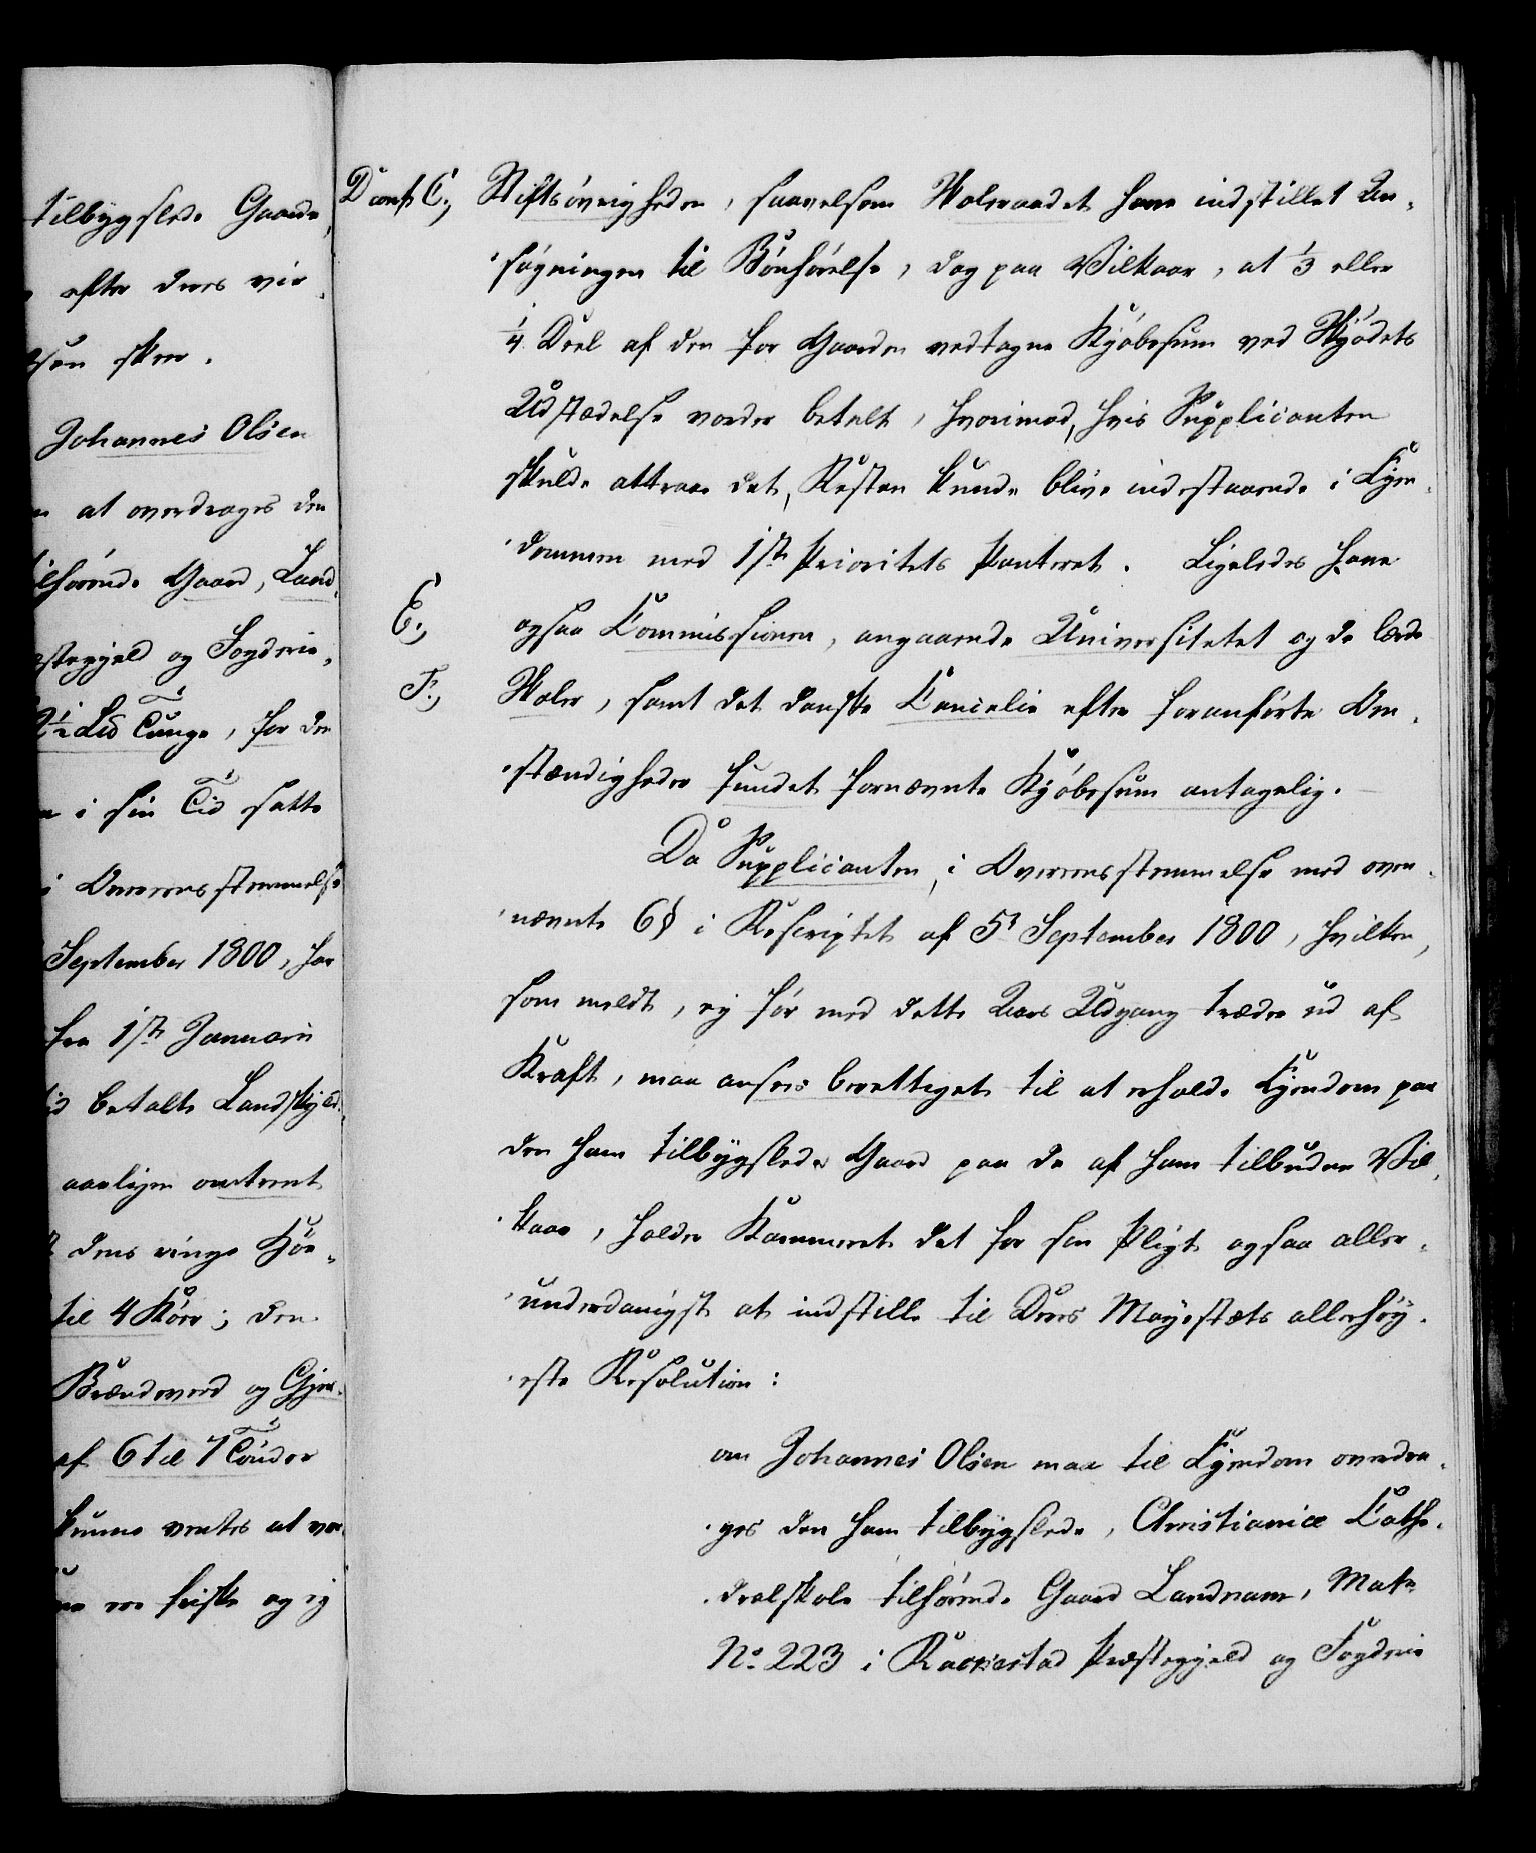 tilbygslede Gaarde,
efter deres vir-
sen skeer.
Johannes Olsen
at overdrages den
tilhørende Gaard, Land-
stegjeld og Fogderie,
2½ L℔ Tunge, for den
i sin Tid satte
i Overeensstemmelse
September 1800, har
fra 1ste Januarii
betalt Landskyld
aarligen omtrent
dens ringe Hør-
til 4 Køer; den
Brændeved og Gjer-
af 6 til 7 Tønder
kunne ventes at væ-
friske og ej
D conf. C., Stiftsøvrigheden, saavelsom Skoleraadet have indstillet An-
søgningen til Bønhørelse, dog paa Vilkaar, at 1/3 eller
1/4 Deel af den for Gaarden vedtagne Kjøbesum ved Skjødets
Udstædelse vorder betalt, hvorimod, hvis Supplicanten
skulde attraae det, Resten kunde blive indestaaende i Eyen-
dommen med 1ste Prioritets Panteret. Ligeledes have
E., ogsaa Commissionen, angaaende Universitetet og de lærde
F., Skoler, samt det danske Cancelie efter foranførte Om-
stændigheder fundet fornævnte Kjøbesum antagelig.
Da Supplicanten, i Overeensstemmelse med oven-
nævnte 6§ i Rescriptet af 5t September 1800, hvilken,
som meldt, ej før med dette Aars Udgang træder ud af
Kraft, maa ansees berettiget til at erholde Eyendom paa
den ham tilbygslede Gaard paa de af ham tilbudne Vil-
kaar, holder Kammeret det for sin Pligt ogsaa aller-
underdanigst at indstille til Deres Mayestæts allerhøy-
este Resolution:
om Johannes Olsen maa til Eyendom overdra-
ges den ham tilbygslede, Christianiæ Cathe-
dralskole tilhørende Gaard Landnam, Matr.
No. 223 i Rackestad Præstegjeld og Fogderie